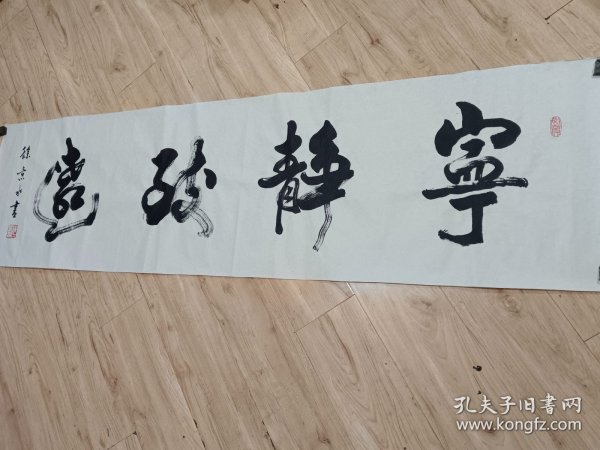 寧靜致遠
徐京水書
孔夫子旧书网
www.kongfz.com